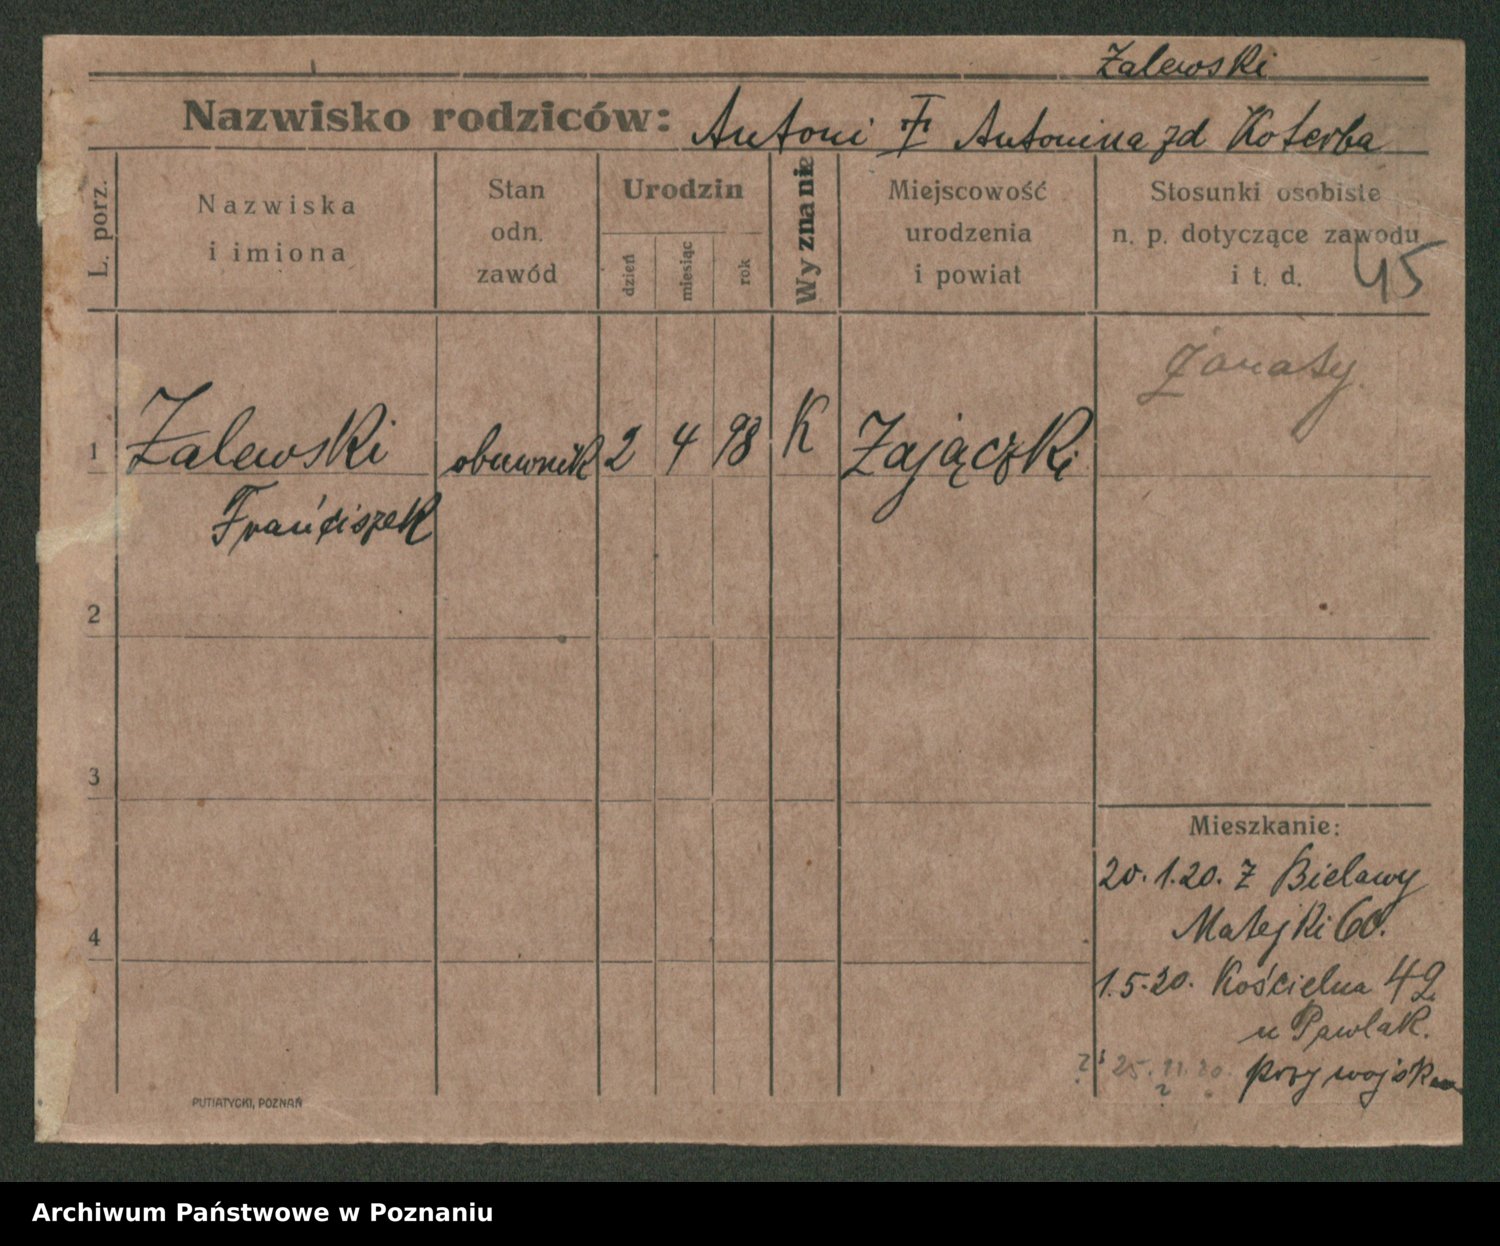 Zalewski
Nazwisko rodziców: Antoni Antonina zd Koterba
L. porz.
Nazwiska
i imiona
Stan
odn.
zawód
Urodzin
dzień
miesiąc
rok
Wyznanie
Miejscowość
urodzenia
i powiat
Stosunki osobiste
n. p. dotyczące zawodu
i t. d.
45
żonaty
1
Zalewski
obuwnik
2
4
98
K
Zajączki
Franciszek
2
3
4
Mieszkanie:
20.1.20. z Bielawy
Matejki 60.
1.5.20. Kościelna 42
u Pawlak.
25.11.20. przy wojsku
PUTIATYCKI, POZNAŃ
Archiwum Państwowe w Poznaniu